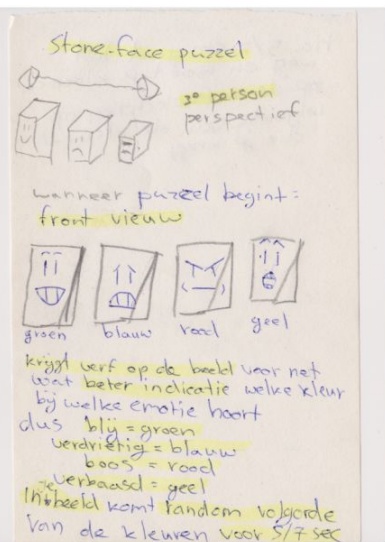 Stone-face puzzel
3e person
perspectief
wanneer puzzel begint =
front vieuw
groen blauw rood geel
krijgt verf op de beeld voor net
wat beter indicatie welke kleur
bij welke emotie hoort
dus blij = groen
verdrietig = blauw
boos = rood
verbaasd = geel
In beeld komt random volgorde
van de kleuren voor 5/7 sec